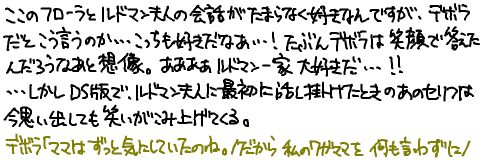 ここのフローラとルドマン夫人の会話がたまらなく好きなんですが、デボラ
だとこう言うのか…こっちも好きだなあ…！たぶんデボラは笑顔で答えた
んだろうなあと想像。ああああルドマン一家大好きだ…!!
…しかしDS版で、ルドマン夫人に最初に話し掛けたときのあのセリフは
今思い出しても笑いがこみ上げてくる。
デボラ「ママはずっと気にしていたのね。/だから 私のワガママを 何も言わずに/